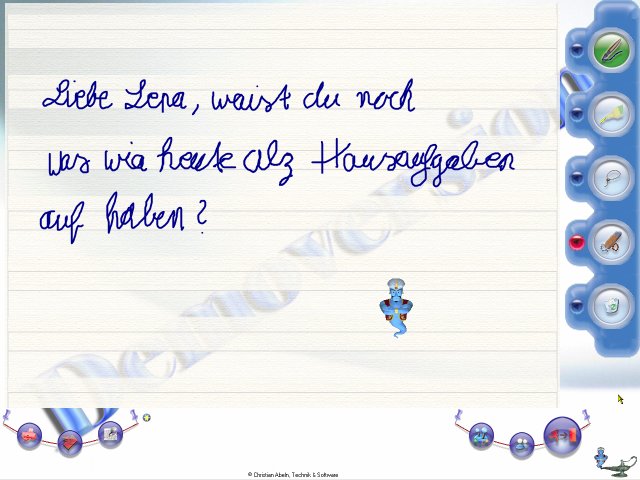 Liebe Lena, waist du noch
was wia heute alz Hausaufgaben
auf haben?
Demoversion
© Christian Abeln, Technik & Software